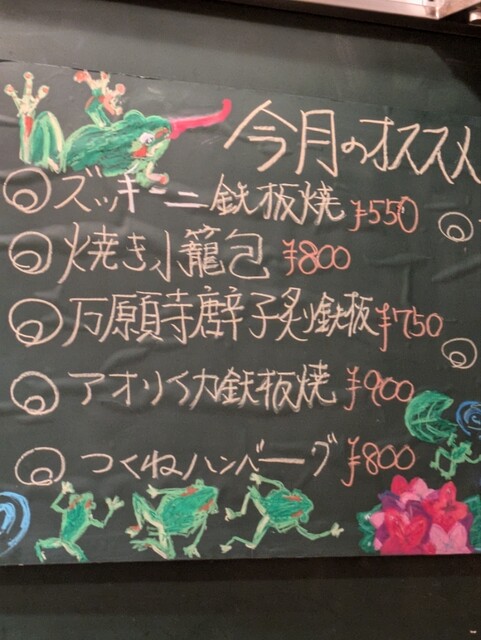 今月のオススメ
ズッキーニ鉄板焼 ¥550
焼き小籠包 ¥800
万願寺唐辛子炙り鉄板 ¥750
アオリイカ鉄板焼 ¥900
つくねハンバーグ ¥800